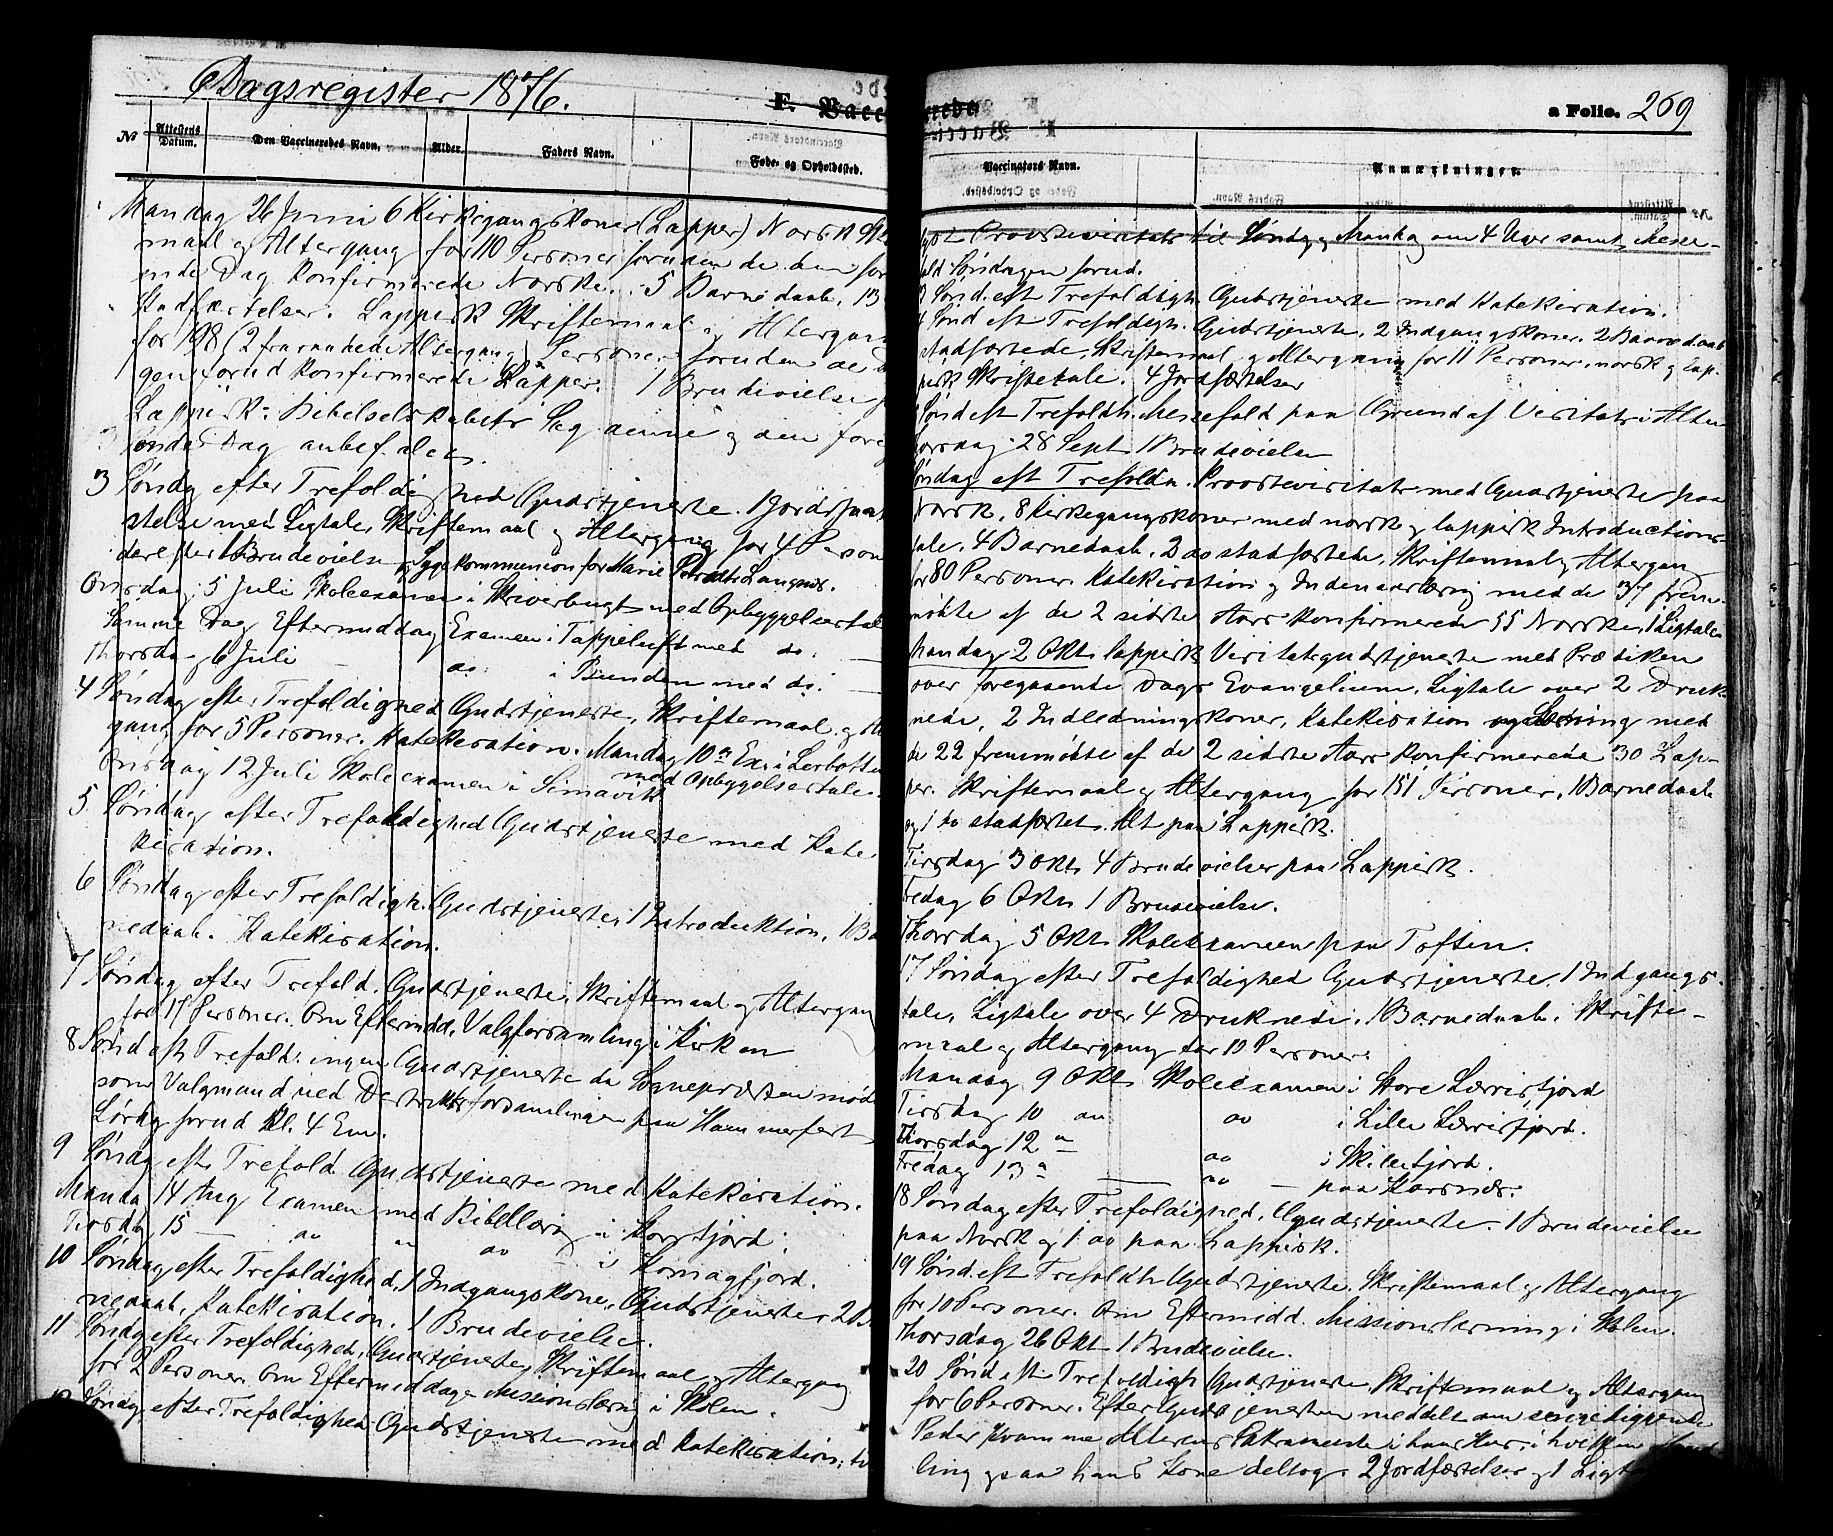 Dagsregister 1876.
F. Vaccinerede
a Folio. 269
№
Attestens Datum.
Den Vaccineredes Navn.
Alder.
Faders Navn.
Føde- og Opholdssted.
Vaccinators Navn.
Anmærkninger
Mandag 26 Juni 6 Kirkegangskoner (Lapper) Norsk
maal og Altergang for 110 Personer foruden de
Dag Konfirmerede Norske. 5 Barnedaab, 13
Stadfæstelser. Lappisk Skriftemaal og Altergan
for 198 (2 fra Altergang) Personer foruden de
gen forud Konfirmerede Lapper. 1 Brudevielse
Lappisk. Bibelselskabets Sag denne og den fore
Dag anbefalet.
3 Søndag efter Trefoldighed Gudstjeneste. 1 Jordfæst
stelse med Ligtale, Skriftemaal og Altergang for 4 Person
derefter 1 Brudevielse og Sygekommunion for Marie
Onsdag 5 Juli Skoleexamen i Skivebugt med Opbyggelsestale
Samme Dag Eftermiddag Examen i Tappeluft med do.
Thorsdag 6 Juli — do. i Bunden med do.
4 Søndag efter Trefoldighed Gudstjeneste, Skriftemaal og Al
gang for 5 Personer. Katekisation. Mandag 10 Ex. i Lerbotten
med Opbyggelsestale.
Onsdag 12 Juli Skoleexamen i Simavik
5 Søndag efter Trefoldighed Gudstjeneste med Kate-
kisation.
6 Søndag efter Trefoldigh. Gudstjeneste, 1 Introduktion, 1 Ba
nedaab. Katekisation.
7 Søndag efter Trefold. Gudstjeneste, Skriftemaal og Altergang
for 17 Personer. Om Eftermidd. Valgforsamling i Kirken
8 Sønd. eft. Trefold. ingen Gudstjeneste da Sognepræsten mød
som Valgmand ved Distriktsforsamlingen paa Hammerfest
Lørdag forud Kl. 4 Em.
9 Søndag eft. Trefold. Gudstjeneste med Katekisation.
Mandag 14 Aug Examen med Bibellæsning i Korsfjord.
Tirsdag 15 — do " do i Komagfjord.
10 Søndag efter Trefoldighed, 1 Indgangskone, Gudstjeneste 2 Ba
nedaab, Katekisation. 1 Brudevielse.
11 Søndag efter Trefoldighed. Gudstjeneste, Skriftemaal og Altergang
for 2 Personer. Om Eftermiddagen Missionslæsn. i Skolen.
12 Søndag efter Trefoldighed Gudstjeneste med Katekisation;
Provstevisitats til Søndag og Mandag om 4 Uger samt Messe-
fald Søndagen forud.
13 Sønd. eft. Trefoldigh. Gudstjeneste med Katekisation.
Sønd. eft. Trefoldigh. Gudstjeneste. 2 Indgangskoner. 2 Barnedaab
stadfæstede, Skriftemaal og Altergang for 11 Personer, norsk og lap-
pisk Skriftetale. 4 Jordfæstelser
Sønd. eft. Trefoldh. Messefald paa Grund af Visitats i Alten
Torsdag 28 Sept. 1 Brudevielse
Søndag eft. Trefoldh. Provstevisitats med Gudstjeneste paa
Norsk, 8 Kirkegangskoner med norsk og lappisk Introductions-
tale. 4 Barnedaab, 2 do stadfæstede, Skriftemaal og Altergang
for 80 Personer. Katekisation og Indenadslæsning med de 37 frem-
mødte af de 2 sidste Aars Konfirmerede 55 Norske, 1 Ligtale
Mandag 2 Okt. lappisk Visitatsgudstjeneste med Prædiken
over foregaaende Dags Evangelium. Ligtale over 2 Druk-
nede, 2 Indledningskoner, Katekisation og Læsning med
de 22 fremmødte af de 2 sidste Aars Konfirmerede 30 Lap-
per. Skriftemaal og Altergang for 151 Personer, 1 Barnedaab
og 1 do stadfæstet. Alt paa Lappisk.
Tirsdag 3 Okt. 4 Brudevielser paa Lappisk.
Fredag 6 Okt. 1 Brudevielse.
Thorsdag 5 Okt. Skoleexamen paa Toften.
17 Søndag efter Trefoldighed Gudstjeneste. 1 Indgangs-
tale, Ligtale over 4 Druknede. 1 Barnedaab. Skrifte-
maal og Altergang for 19 Personer.
Mandag 9 Okt. Skoleexamen i Store Lærrisfjord
Tirsdag 10 do do i Lille Lærrisfjord.
Thorsdag 12 " do i Skillefjord.
Fredag 13 " — do — paa Korsnæs.
18 Søndag efter Trefoldighed, Gudstjeneste. 1 Brudevielse
paa Norsk og 1 do paa Lappisk.
19 Sønd. eft. Trefoldh. Gudstjeneste. Skriftemaal og Altergang
for 10 Personer. Om Eftermidd. Missionslæsning i Skolen.
Thorsdag 26 Okt. 1 Brudevielse.
20 Sønd. eft. Trefoldigh. Gudstjeneste. Skriftemaal og Altergang
for 6 Personer. Efter Gudstjenesten meddelt den sengeliggende
Peder Kvamme Alterens Sakramente i hans Hus, i hvilken
ling ogsaa hans Kone deltog. 2 Jordfæstelser og 1 Ligt